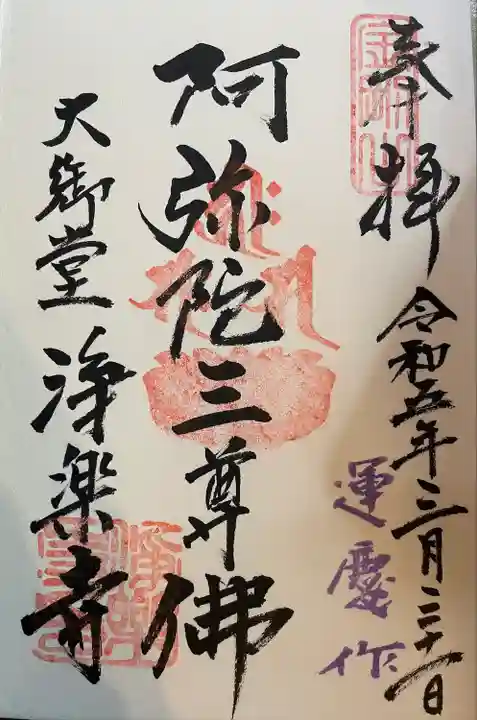 奉拝
令和五年三月二十一日
運慶作
阿弥陀三尊佛
大御堂
浄楽寺